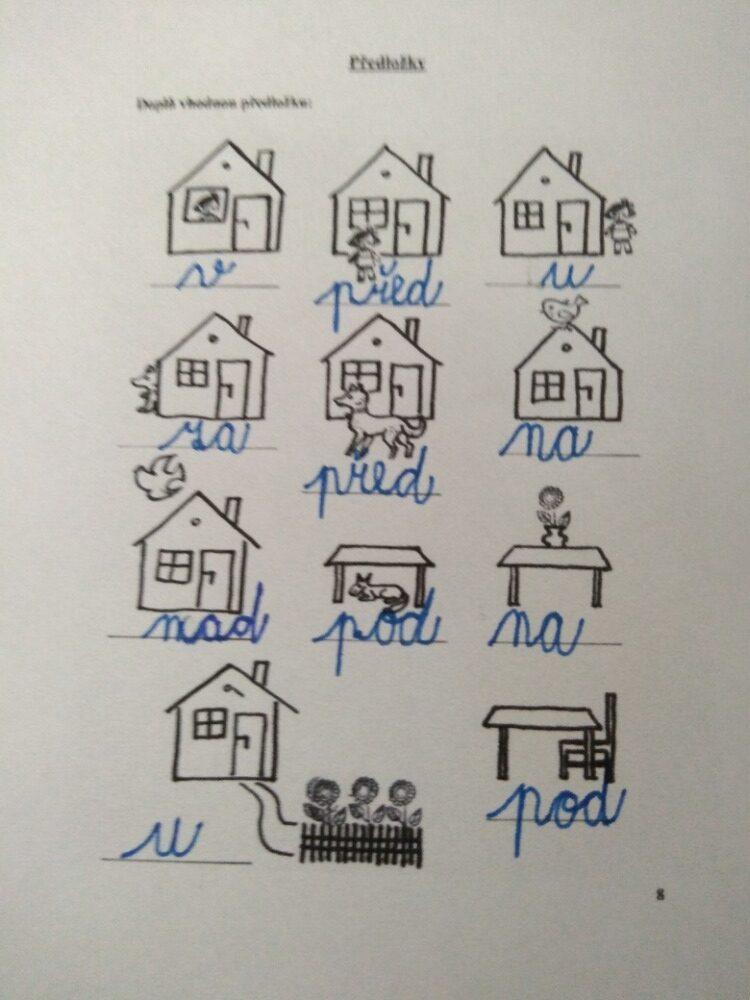 Předložky
Doplň vhodnou předložku:
v před u
za před na
nad pod na
u pod
8